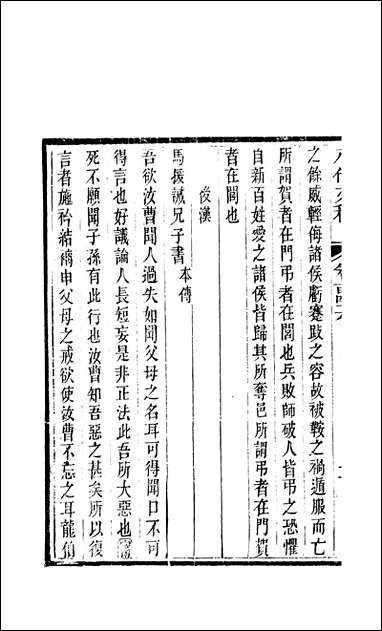 之餘威輕侮諸侯虧蹇跂之容故被鞍之禍遁服而亡
所謂賀者在門弔者在閭也兵敗師破人皆弔之恐懼
自新百姓愛之諸侯皆歸其所奪邑所謂弔者在門賀
者在閭也
後漢
馬援誡兄子書本傳
吾欲汝曹聞人過失如聞父母之名耳可得聞口不可
得言也好議論人長短妄是非正法此吾所大惡也寧
死不願聞子孫有此行也汝曹知吾惡之甚矣所以復
言者施衿結褵申父母之戒欲使汝曹不忘之耳龍伯